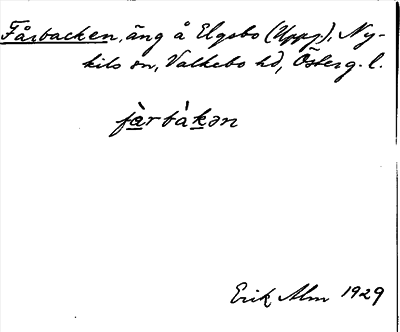 Fårbacken, äng å Elgsbo (Uppg), Ny-
kils sn, Valkebo hd, Österg. l.
fàrbàkən
Erik Alm 1929